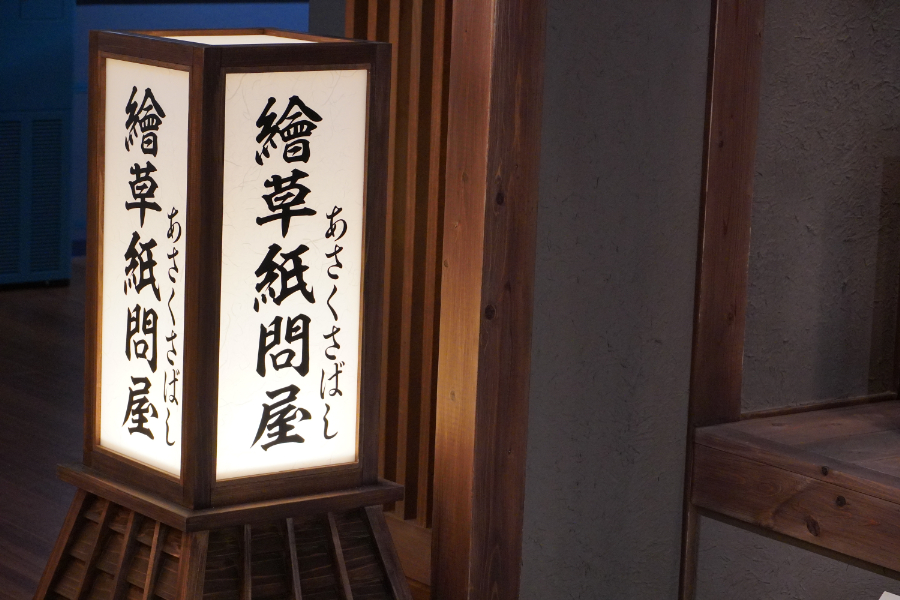 あさくさばし
繪草紙問屋
あさくさばし
繪草紙問屋